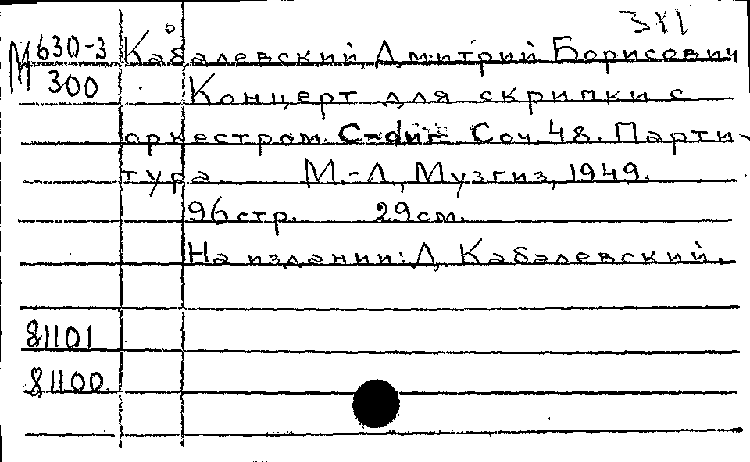 311
М630-3 Кабалевский, Дмитрий Борисович
300 Концерт для скрипки с
оркестром C-dur Соч. 48. Парти-
тура. М.-Л., Музгиз, 1949.
96 стр. 29 см.
На издании: Д. Кабалевский.
81101
81100